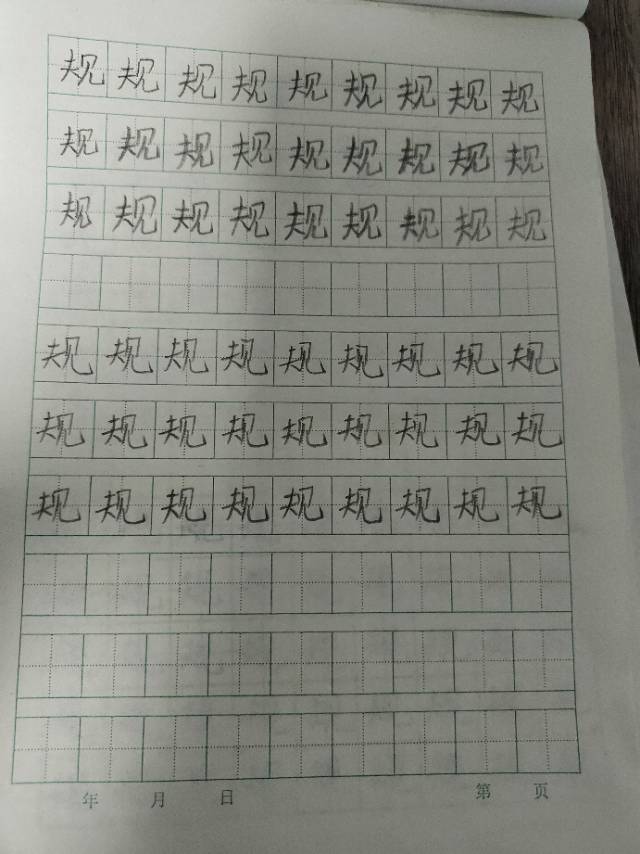 规规规规规规规规规
规规规规规规规规规
规规规规规规规规规
规规规规规规规规规
规规规规规规规规规
规规规规规规规规规
年 月 日 第 页